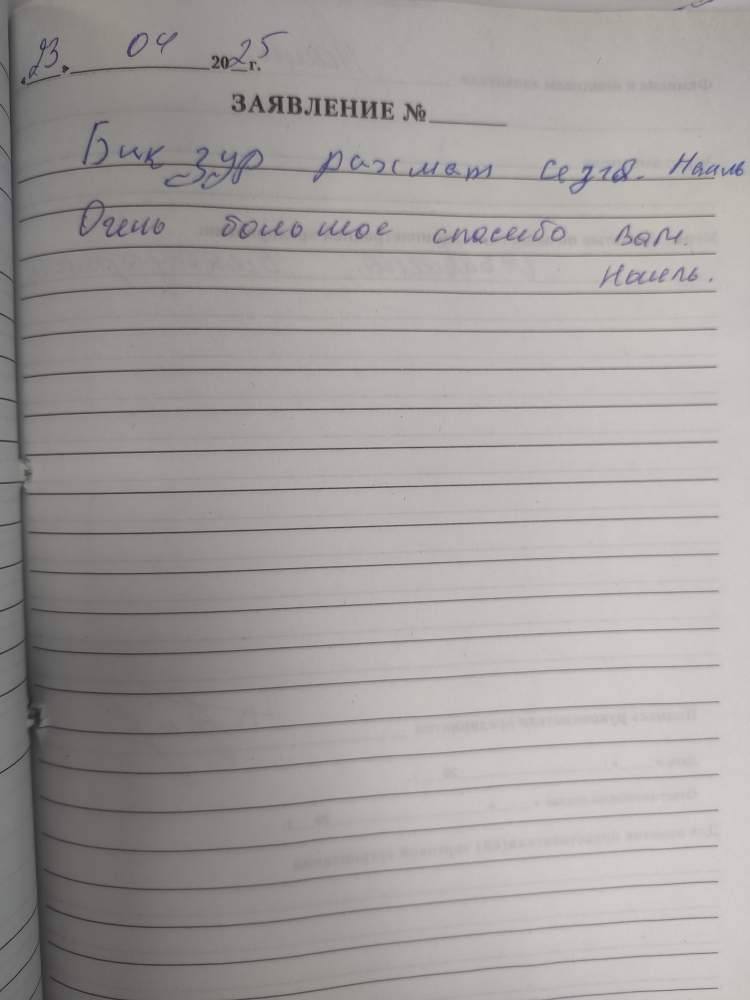 «23» 04 2025 г.
ЗАЯВЛЕНИЕ №
Бик зур рахмат сезгә. Наиль
Очень большое спасибо вам.
Наиль.